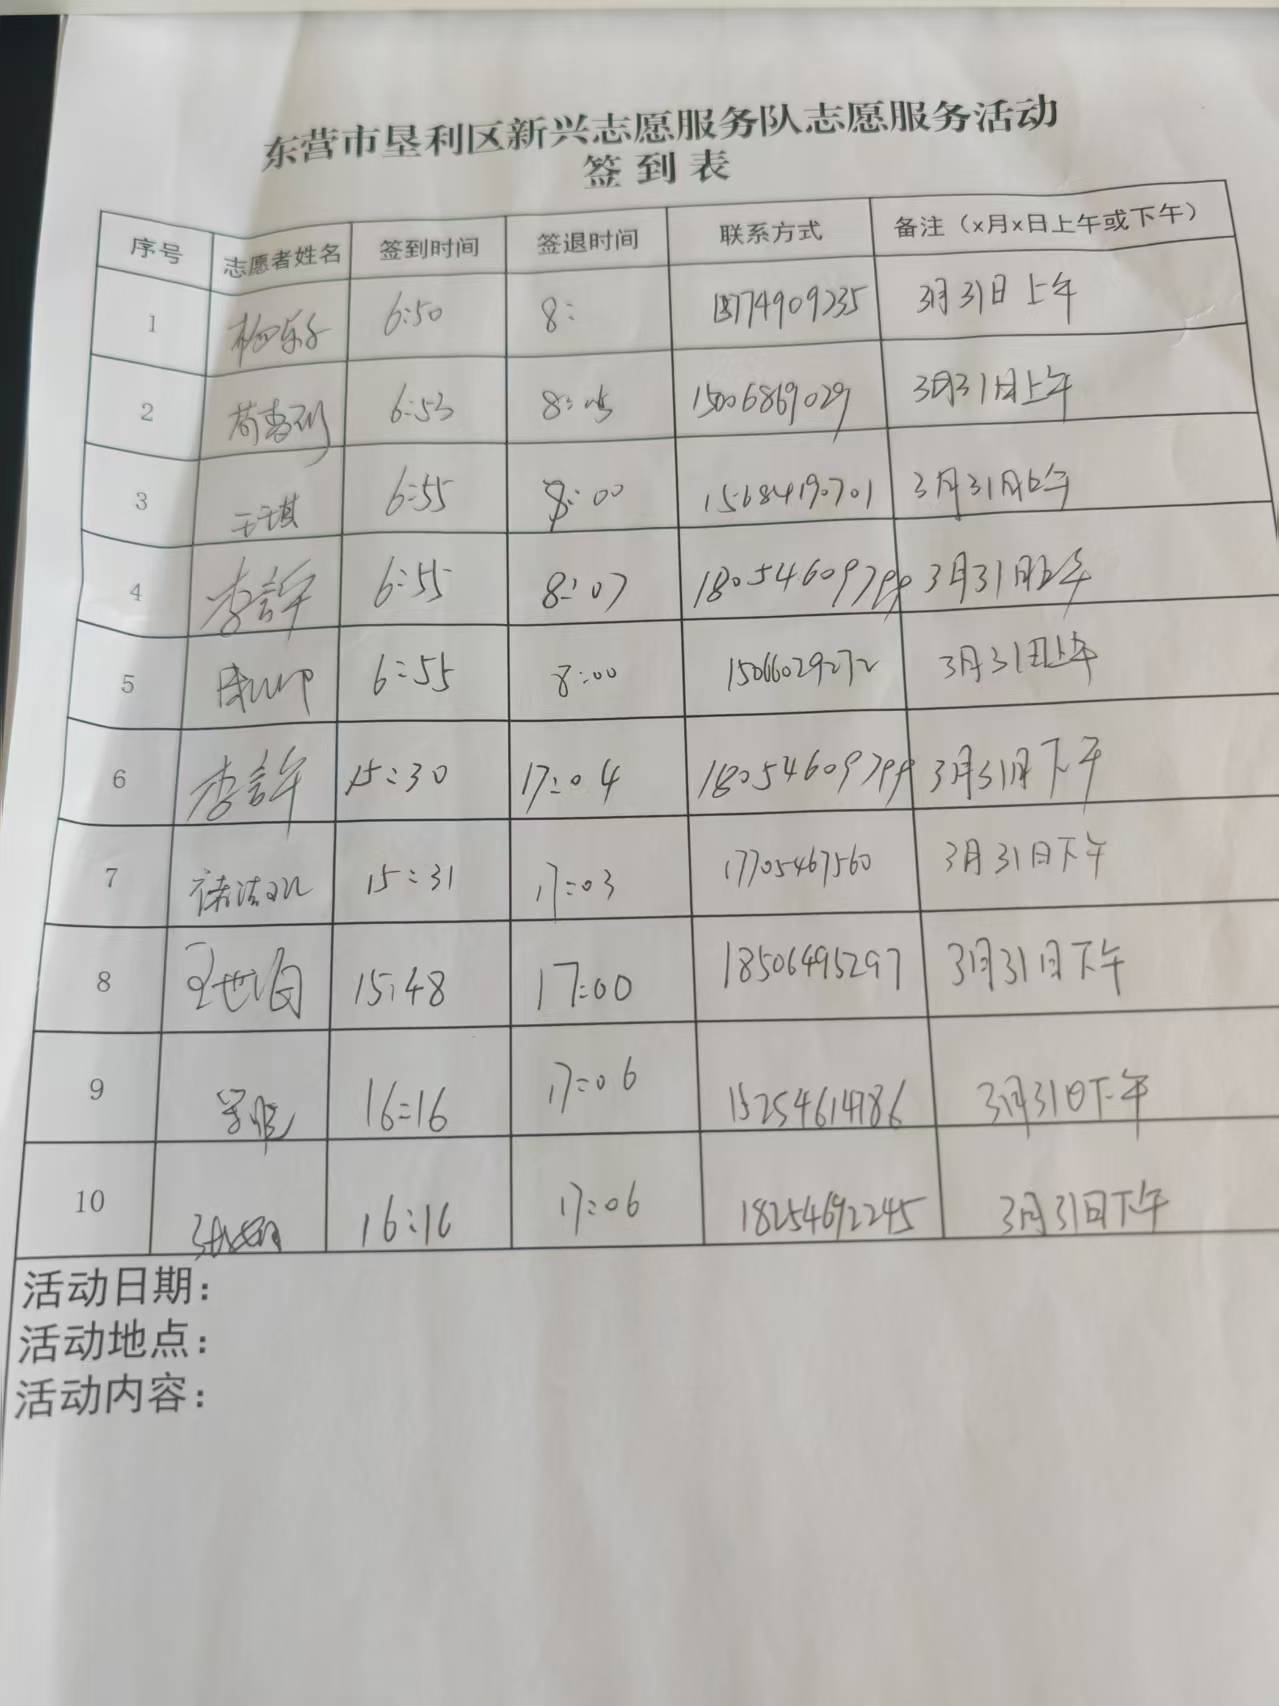 东营市垦利区新兴志愿服务队志愿服务活动
签到表
序号 志愿者姓名 签到时间 签退时间 联系方式 备注（x月x日上午或下午）
1 6:50 8: 3月31日上午
2 6:53 8:05 15006869029 3月31日上午
3 王琪 6:55 8:00 15684190701 3月31日上午
4 6:55 8:07 3月31日上午
5 6:55 8:00 15066029272 3月31日上午
6 15:30 17:04 3月31日下午
7 15:31 17:03 17705467560 3月31日下午
8 15:48 17:00 18506495297 3月31日下午
9 16:16 17:06 3月31日下午
10 16:16 17:06 18254692245 3月31日下午
活动日期：
活动地点：
活动内容：